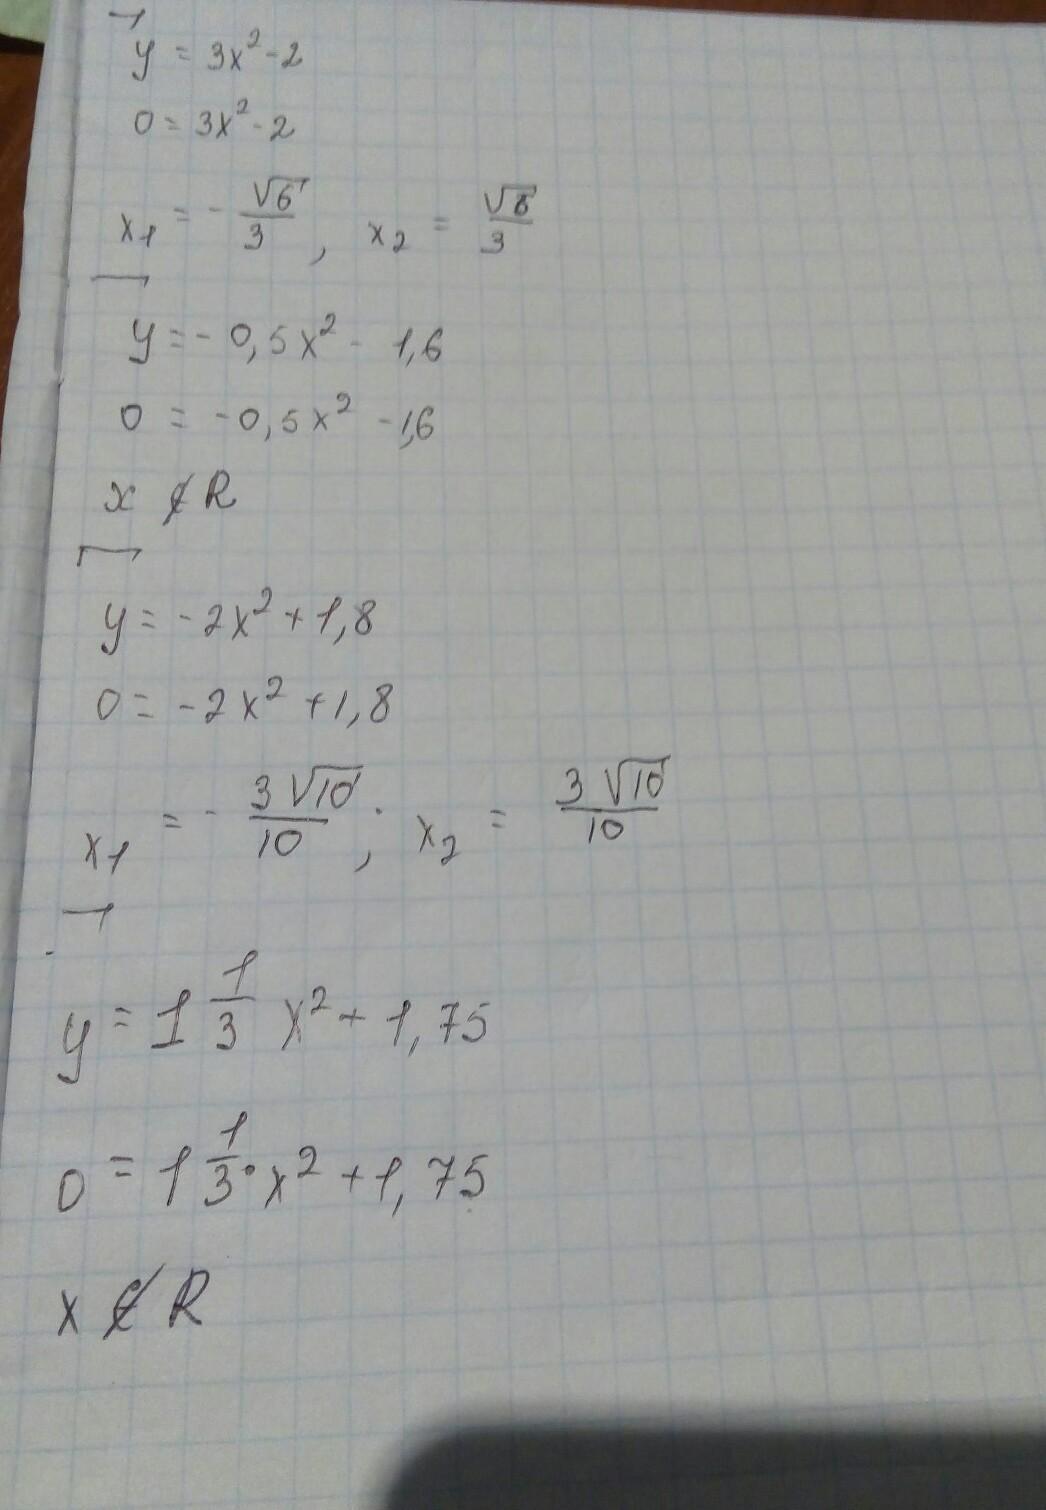 y = 3x² - 2
0 = 3x² - 2
x₁ = - √6/3 , x₂ = √6/3
y = - 0,5x² - 1,6
0 = - 0,5x² - 1,6
x ∉ R
y = - 2x² + 1,8
0 = - 2x² + 1,8
x₁ = - 3√10/10 ; x₂ = 3√10/10
y = 1 1/3 x² + 1,75
0 = 1 1/3 · x² + 1,75
x ∉ R